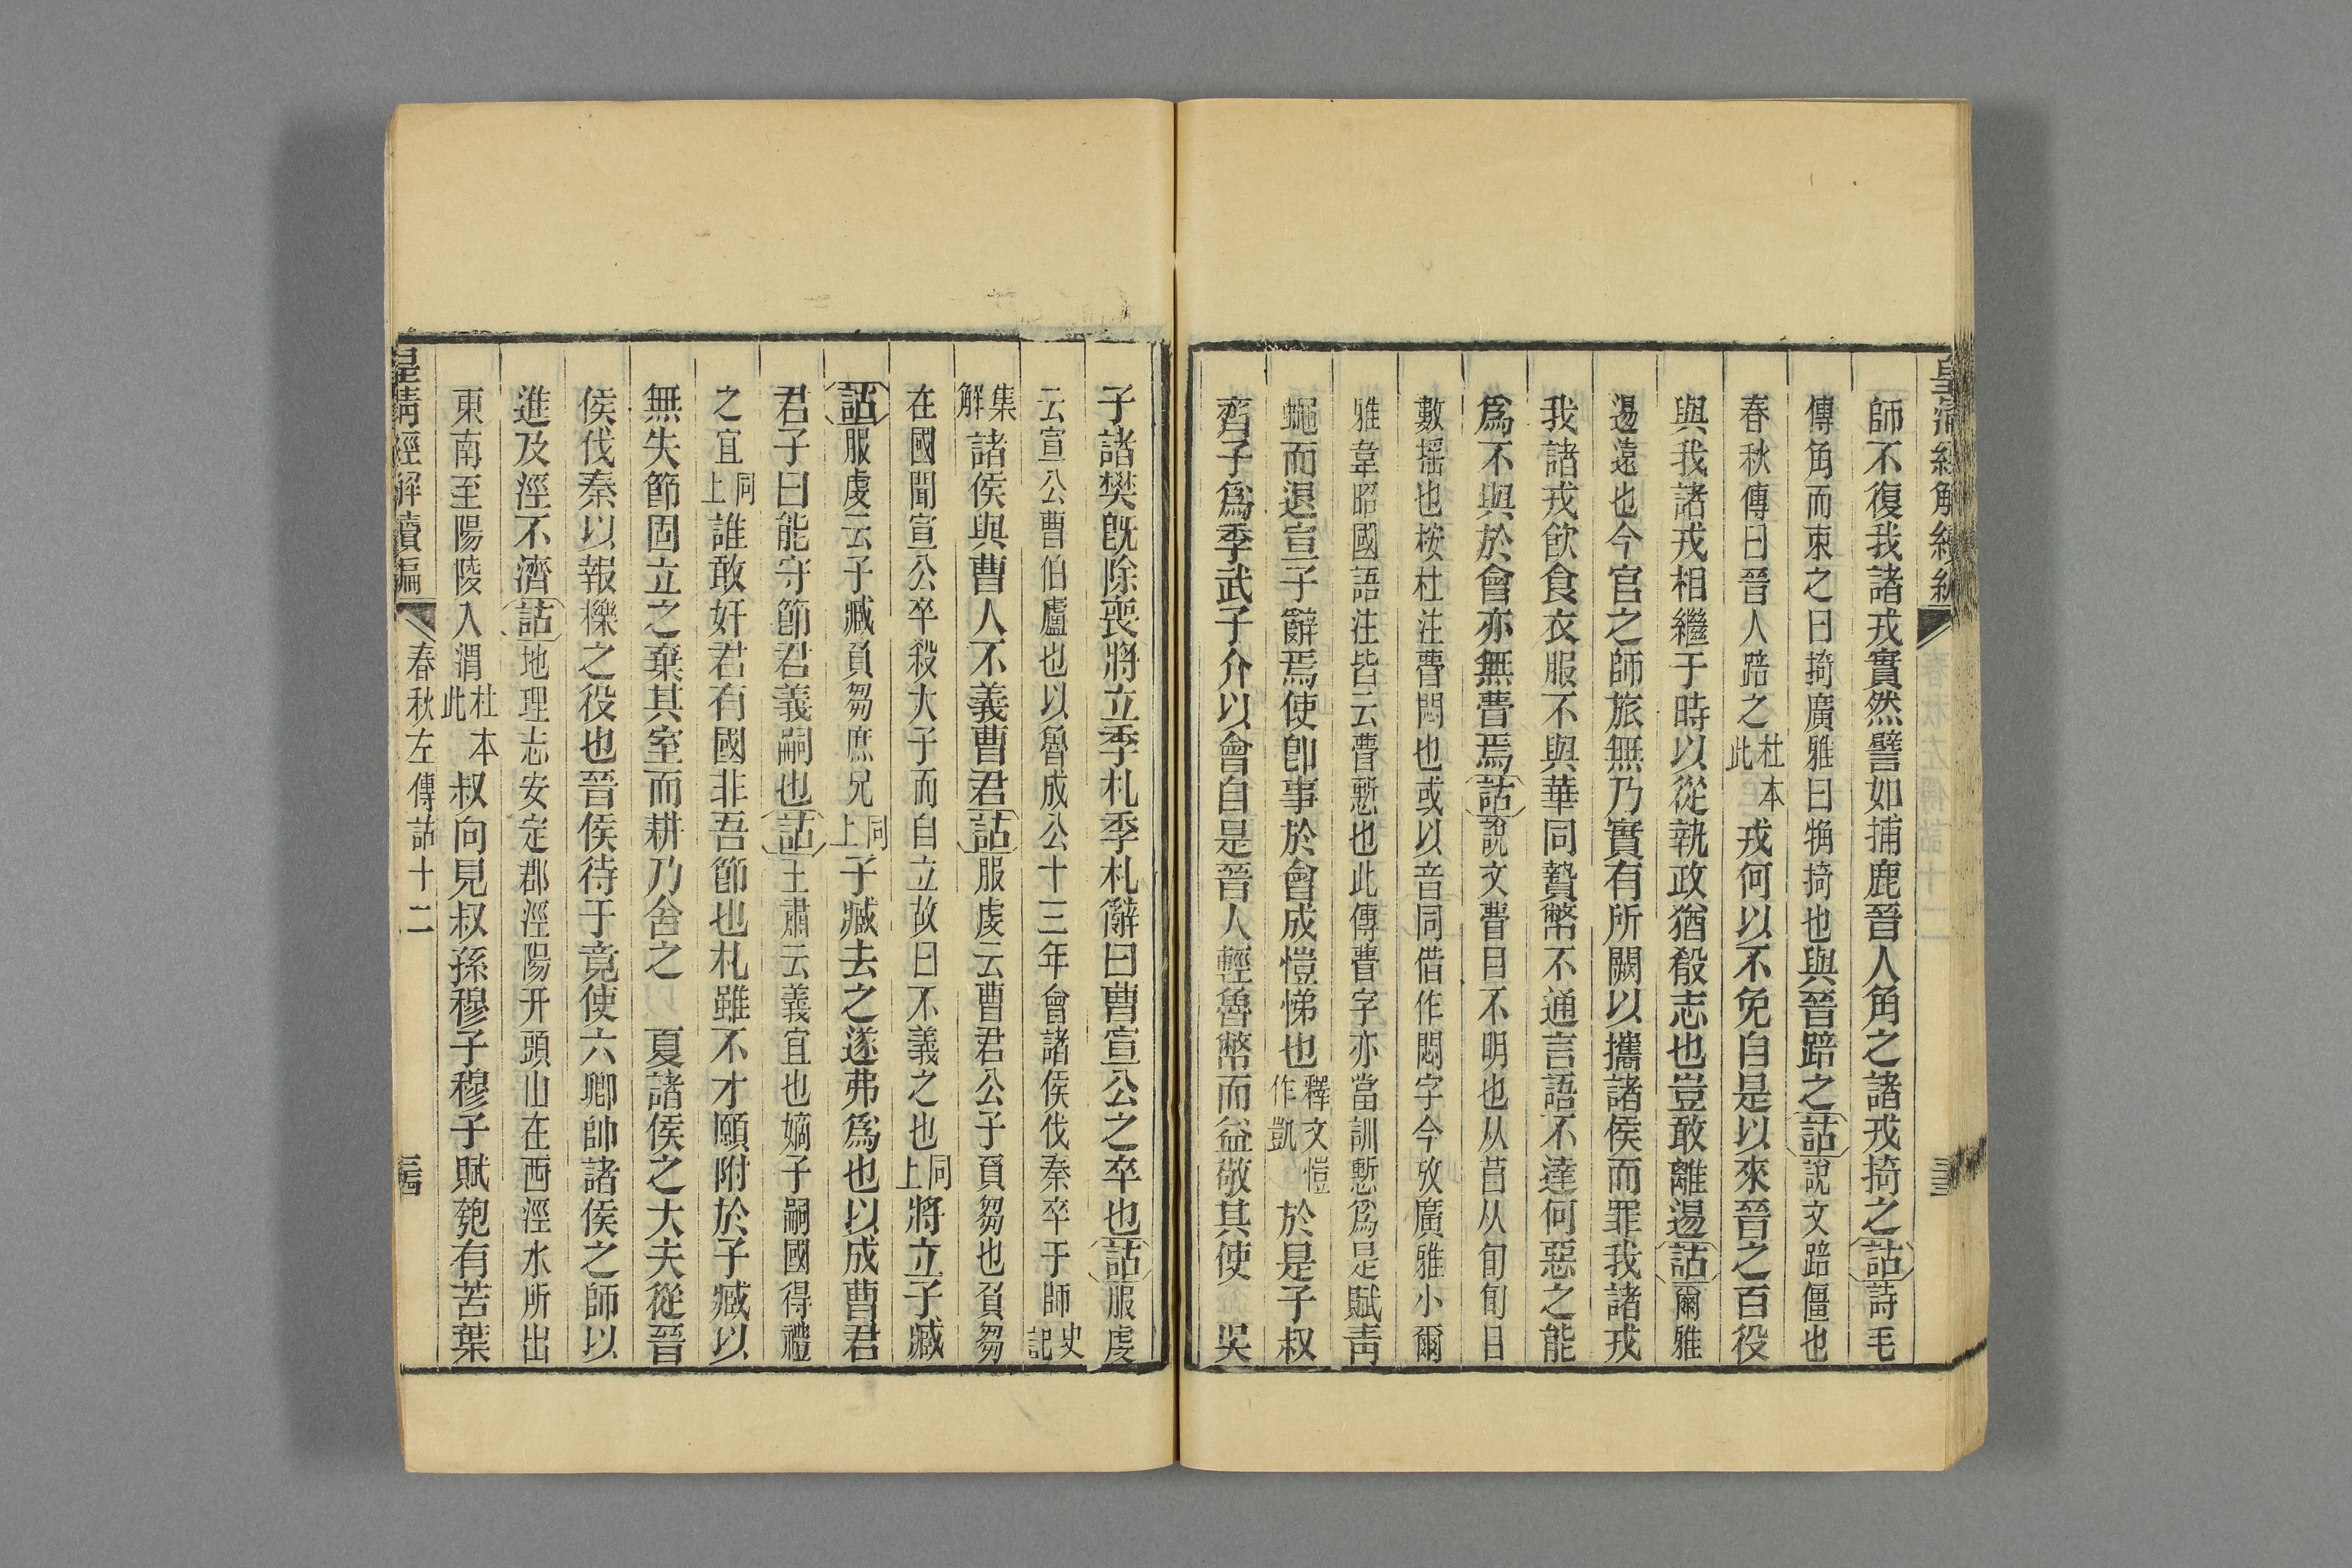 師不復我諸戎實然譬如捕鹿晉人角之諸戎掎之詁詩毛
傳角而束之曰掎廣雅曰犄掎也與晉踣之詁說文踣僵也
春秋傳曰晉人踣之杜本此戎何以不免自是以來晉之百役
與我諸戎相繼于時以從執政猶殽志也豈敢離逷詁爾雅
逷遠也今官之師旅無乃實有所闕以攜諸侯而罪我諸戎
我諸戎飲食衣服不與華同贄幣不通言語不達何惡之能
爲不與於會亦無瞢焉詁說文瞢目不明也从苜从旬旬目
數搖也桉杜注瞢悶也或以音同借作悶字今攷廣雅小爾
雅韋昭國語注皆云瞢慙也此傳瞢字亦當訓慙爲是賦青
蠅而退宣子辭焉使卽事於會成愷悌也釋文愷作凱於是子叔
齊子爲季武子介以會自是晉人輕魯幣而益敬其使 吳
子諸樊旣除喪將立季札季札辭曰曹宣公之卒也詁服虔
云宣公曹伯廬也以魯成公十三年會諸侯伐秦卒于師史記
集解諸侯與曹人不義曹君詁服虔云曹君公子負芻也負芻
在國聞宣公卒殺大子而自立故曰不義之也同上將立子臧
詁服虔云子臧負芻庶兄同上子臧去之遂弗爲也以成曹君
君子曰能守節君義嗣也詁王肅云義宜也嫡子嗣國得禮
之宜同上誰敢奸君有國非吾節也札雖不才願附於子臧以
無失節固立之棄其室而耕乃舍之 夏諸侯之大夫從晉
侯伐秦以報櫟之役也晉侯待于竟使六卿帥諸侯之師以
進及涇不濟詁地理志安定郡涇陽幵頭山在西涇水所出
東南至陽陵入渭杜本此叔向見叔孫穆子穆子賦匏有苦葉
皇淸經解續編 春秋左傳詁十二 三四